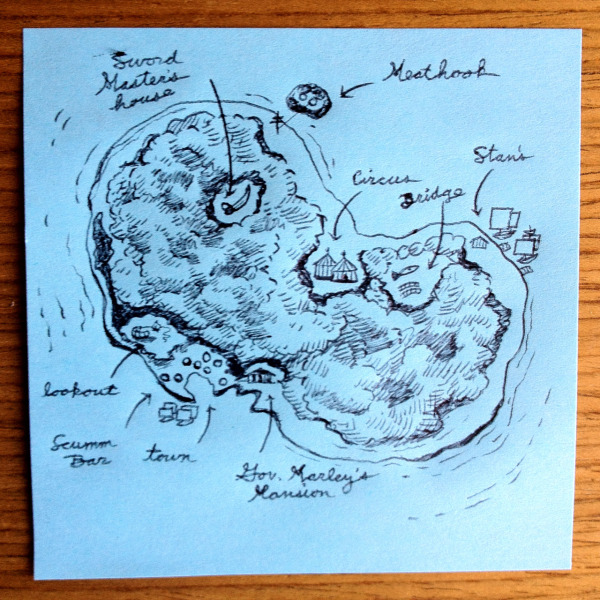 Sword
Master's
house
Meathook
Stan's
Circus
Bridge
lookout
Scumm
Bar
town
Gov. Marley's
Mansion